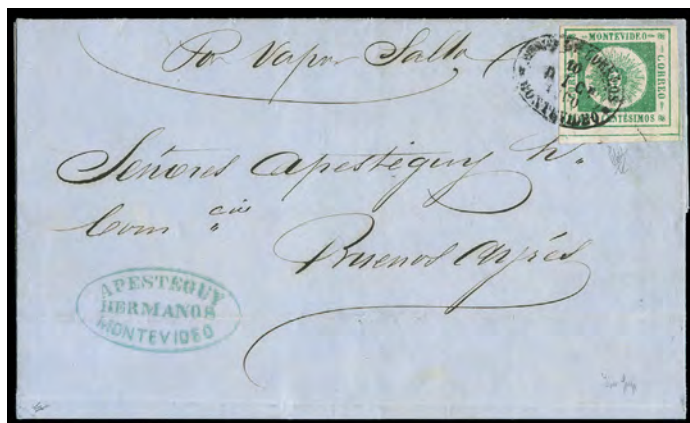 Por Vapor Salto
MONTEVIDEO
CORREO
CENTÉSIMOS
Señores Apestéguy h.
Com cio
Buenos Ayres
APESTEGUY
HERMANOS
MONTEVIDEO